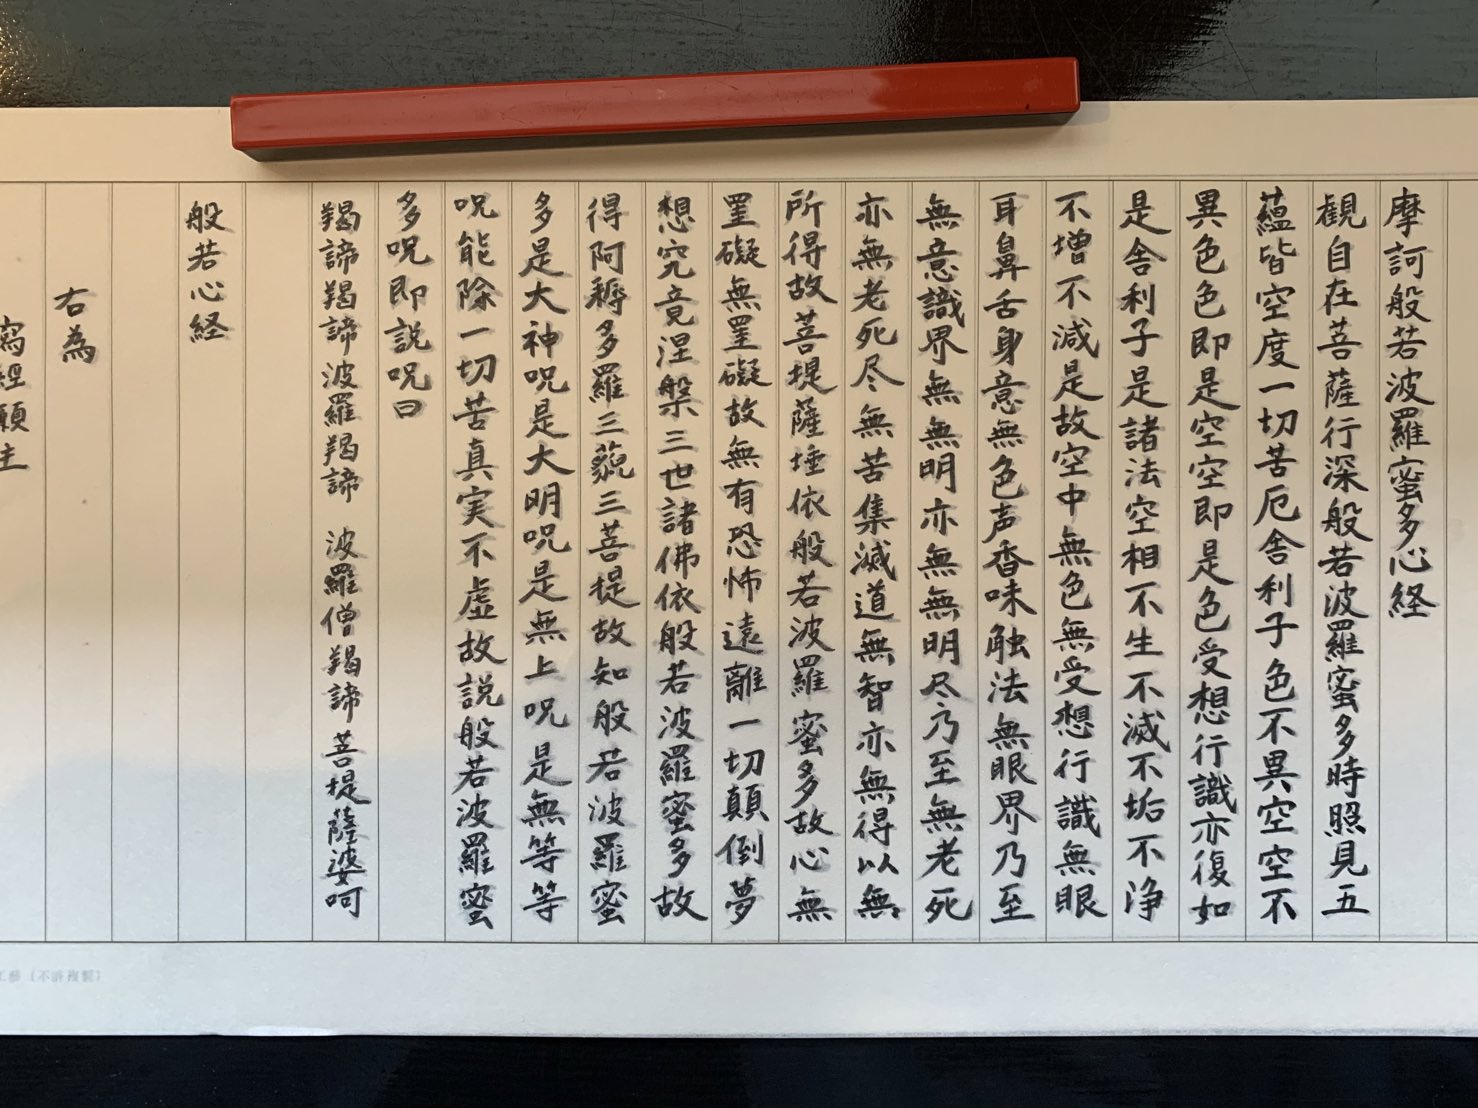 摩訶般若波羅蜜多心経
観自在菩薩行深般若波羅蜜多時照見五
蘊皆空度一切苦厄舎利子色不異空空不
異色色即是空空即是色受想行識亦復如
是舎利子是諸法空相不生不滅不垢不浄
不増不減是故空中無色無受想行識無眼
耳鼻舌身意無色声香味触法無眼界乃至
無意識界無無明亦無無明尽乃至無老死
亦無老死尽無苦集滅道無智亦無得以無
所得故菩提薩埵依般若波羅蜜多故心無
罣礙無罣礙故無有恐怖遠離一切顛倒夢
想究竟涅槃三世諸佛依般若波羅蜜多故
得阿耨多羅三藐三菩提故知般若波羅蜜
多是大神呪是大明呪是無上呪是無等等
呪能除一切苦真実不虚故説般若波羅蜜
多呪即説呪曰
羯諦羯諦波羅羯諦 波羅僧羯諦 菩提薩婆呵
般若心経
右為
写経願主
(不許複製)